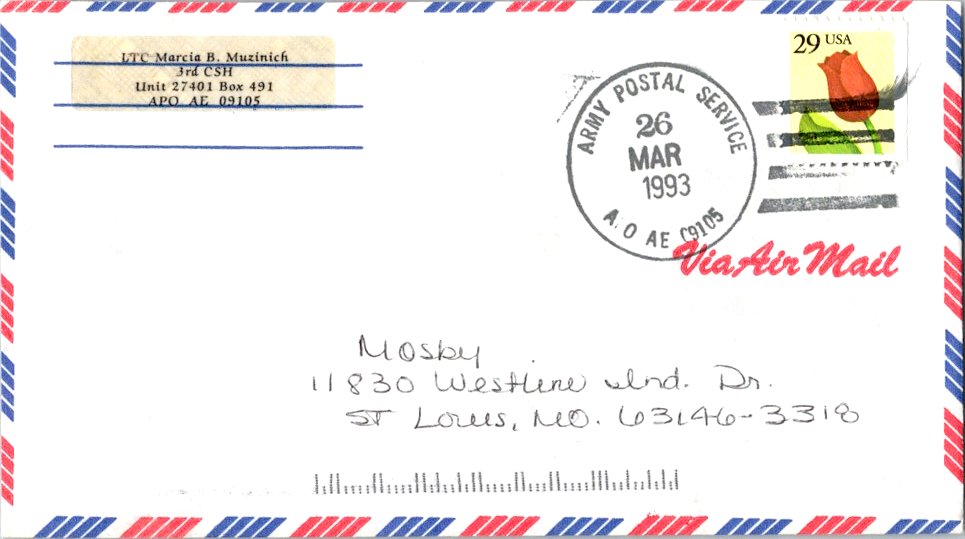 LTC Marcia B. Muzinich
3rd CSH
Unit 27401 Box 491
APO AE 09105
29 USA
ARMY POSTAL SERVICE
26
MAR
1993
A.O AE 09105
Via Air Mail
Mosby
11830 Westline Ind. Dr.
ST Louis, MO. 63146-3318